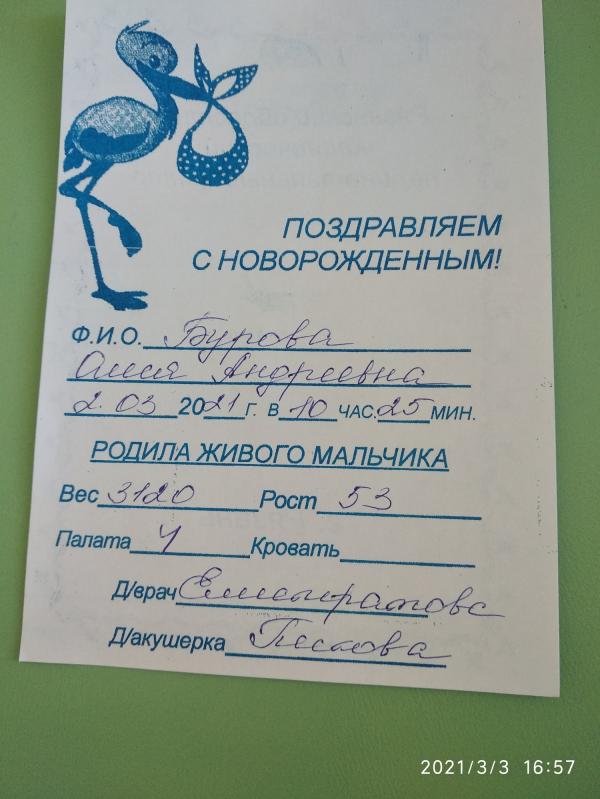 ПОЗДРАВЛЯЕМ
С НОВОРОЖДЕННЫМ!
Ф.И.О. Бурова
Олеся Андреевна
2.03 2021 г. в 10 час. 25 мин.
РОДИЛА ЖИВОГО МАЛЬЧИКА
Вес 3120 Рост 53
Палата 4 Кровать
Д/врач
Д/акушерка
2021/3/3 16:57